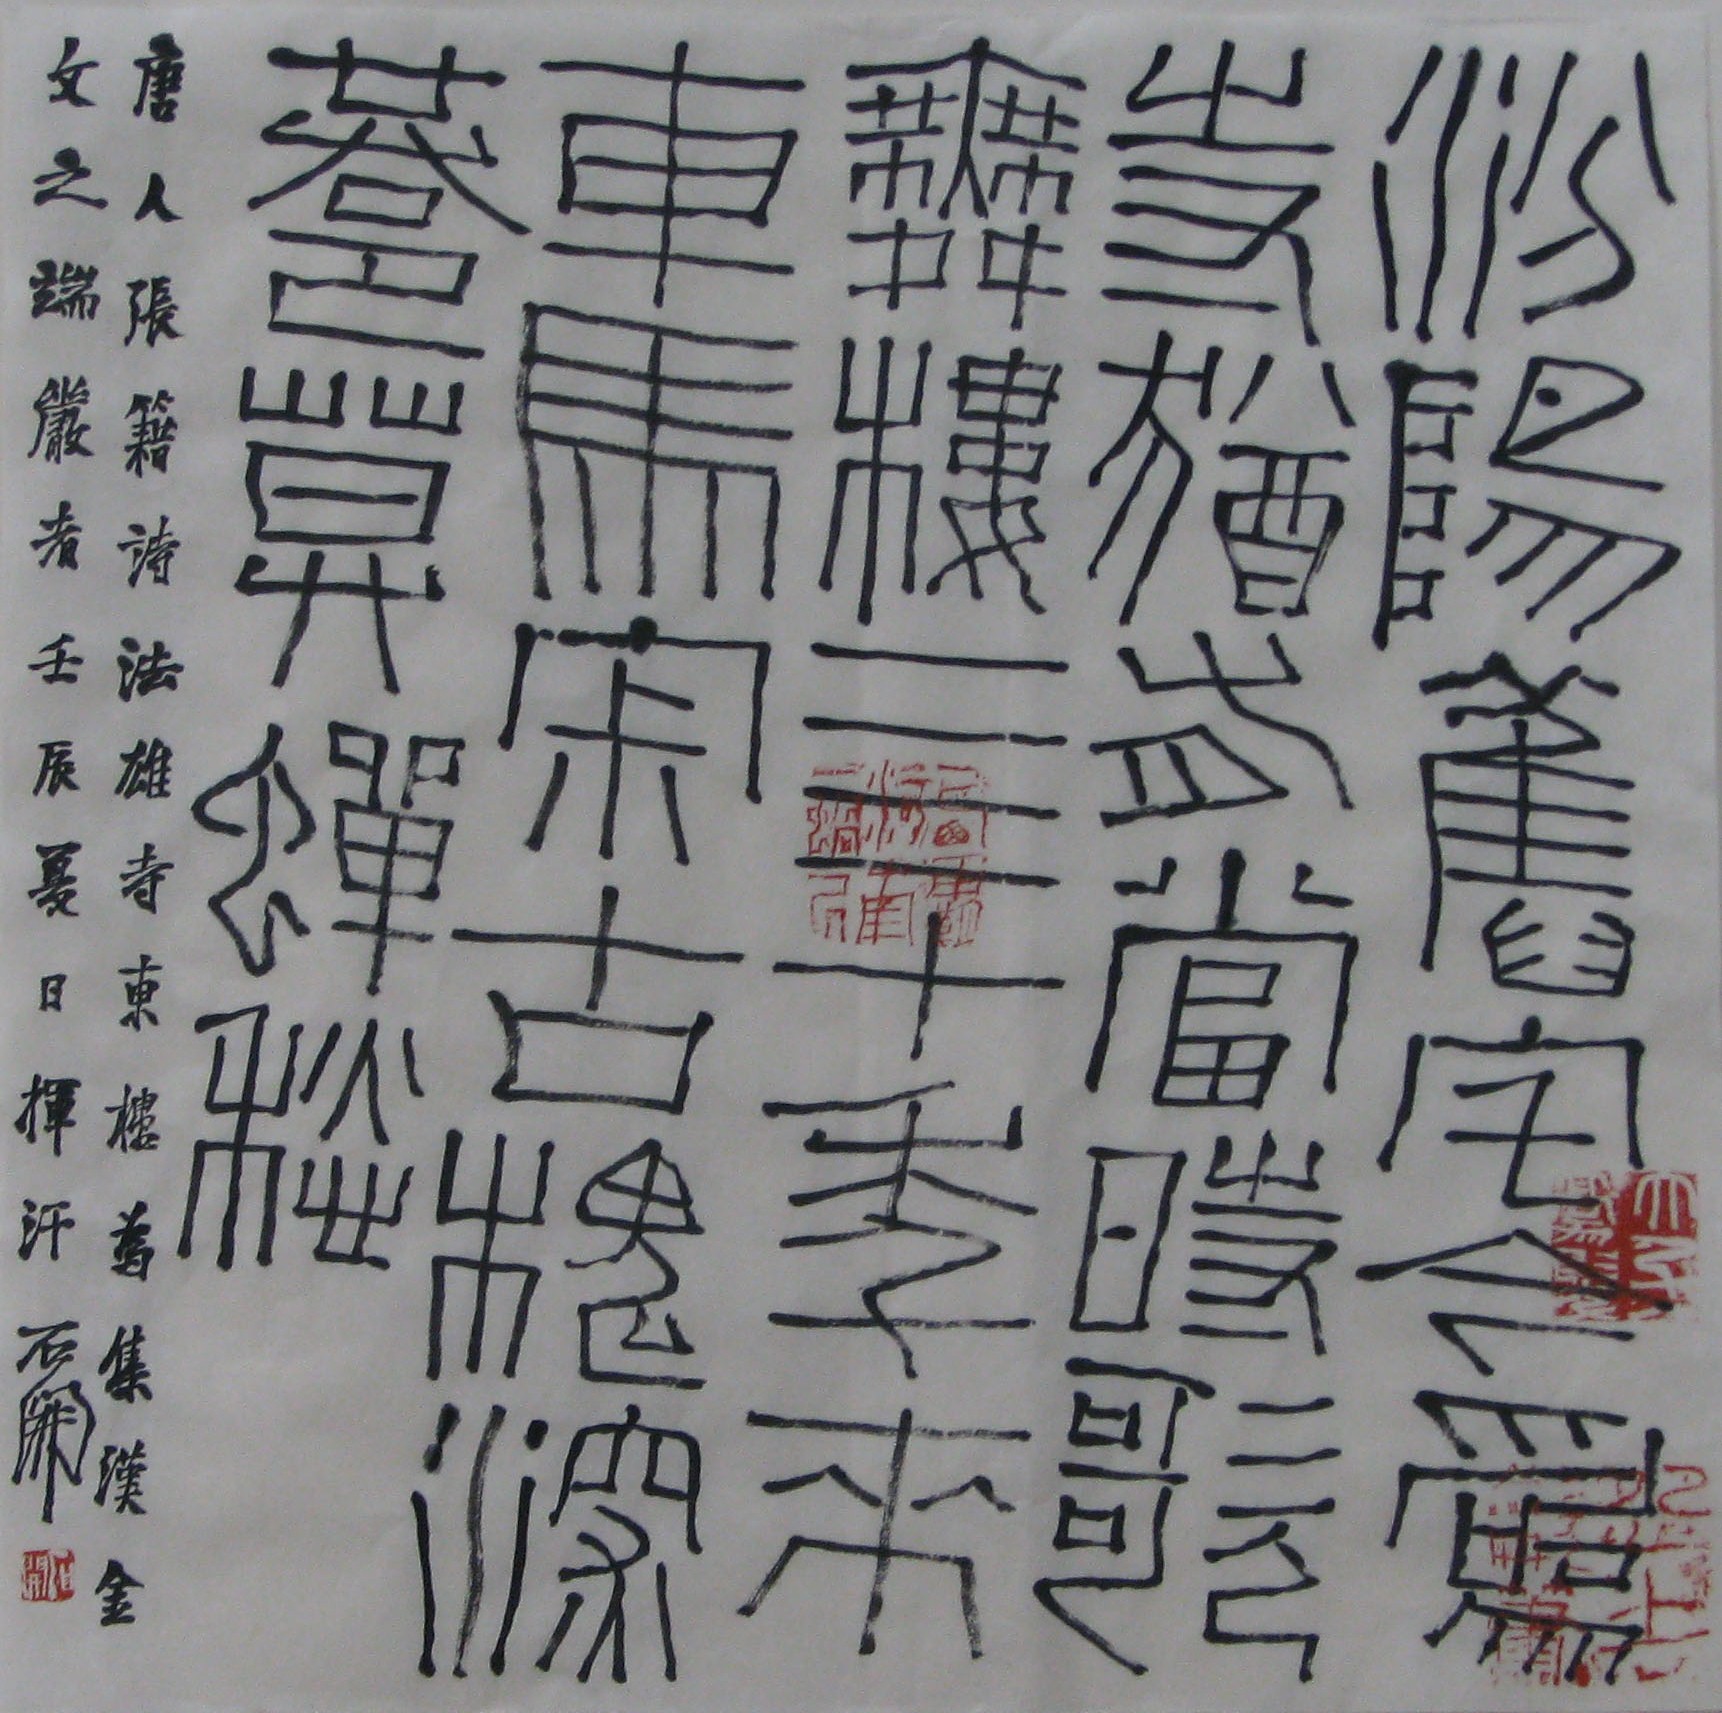 汾陽舊宅今為
寺猶有當時歌
舞樓四十年來
車馬寂古槐深
巷暮蟬愁
唐人張籍詩法雄寺東樓為集漢金
文之端嚴者壬辰夏日揮汗石開